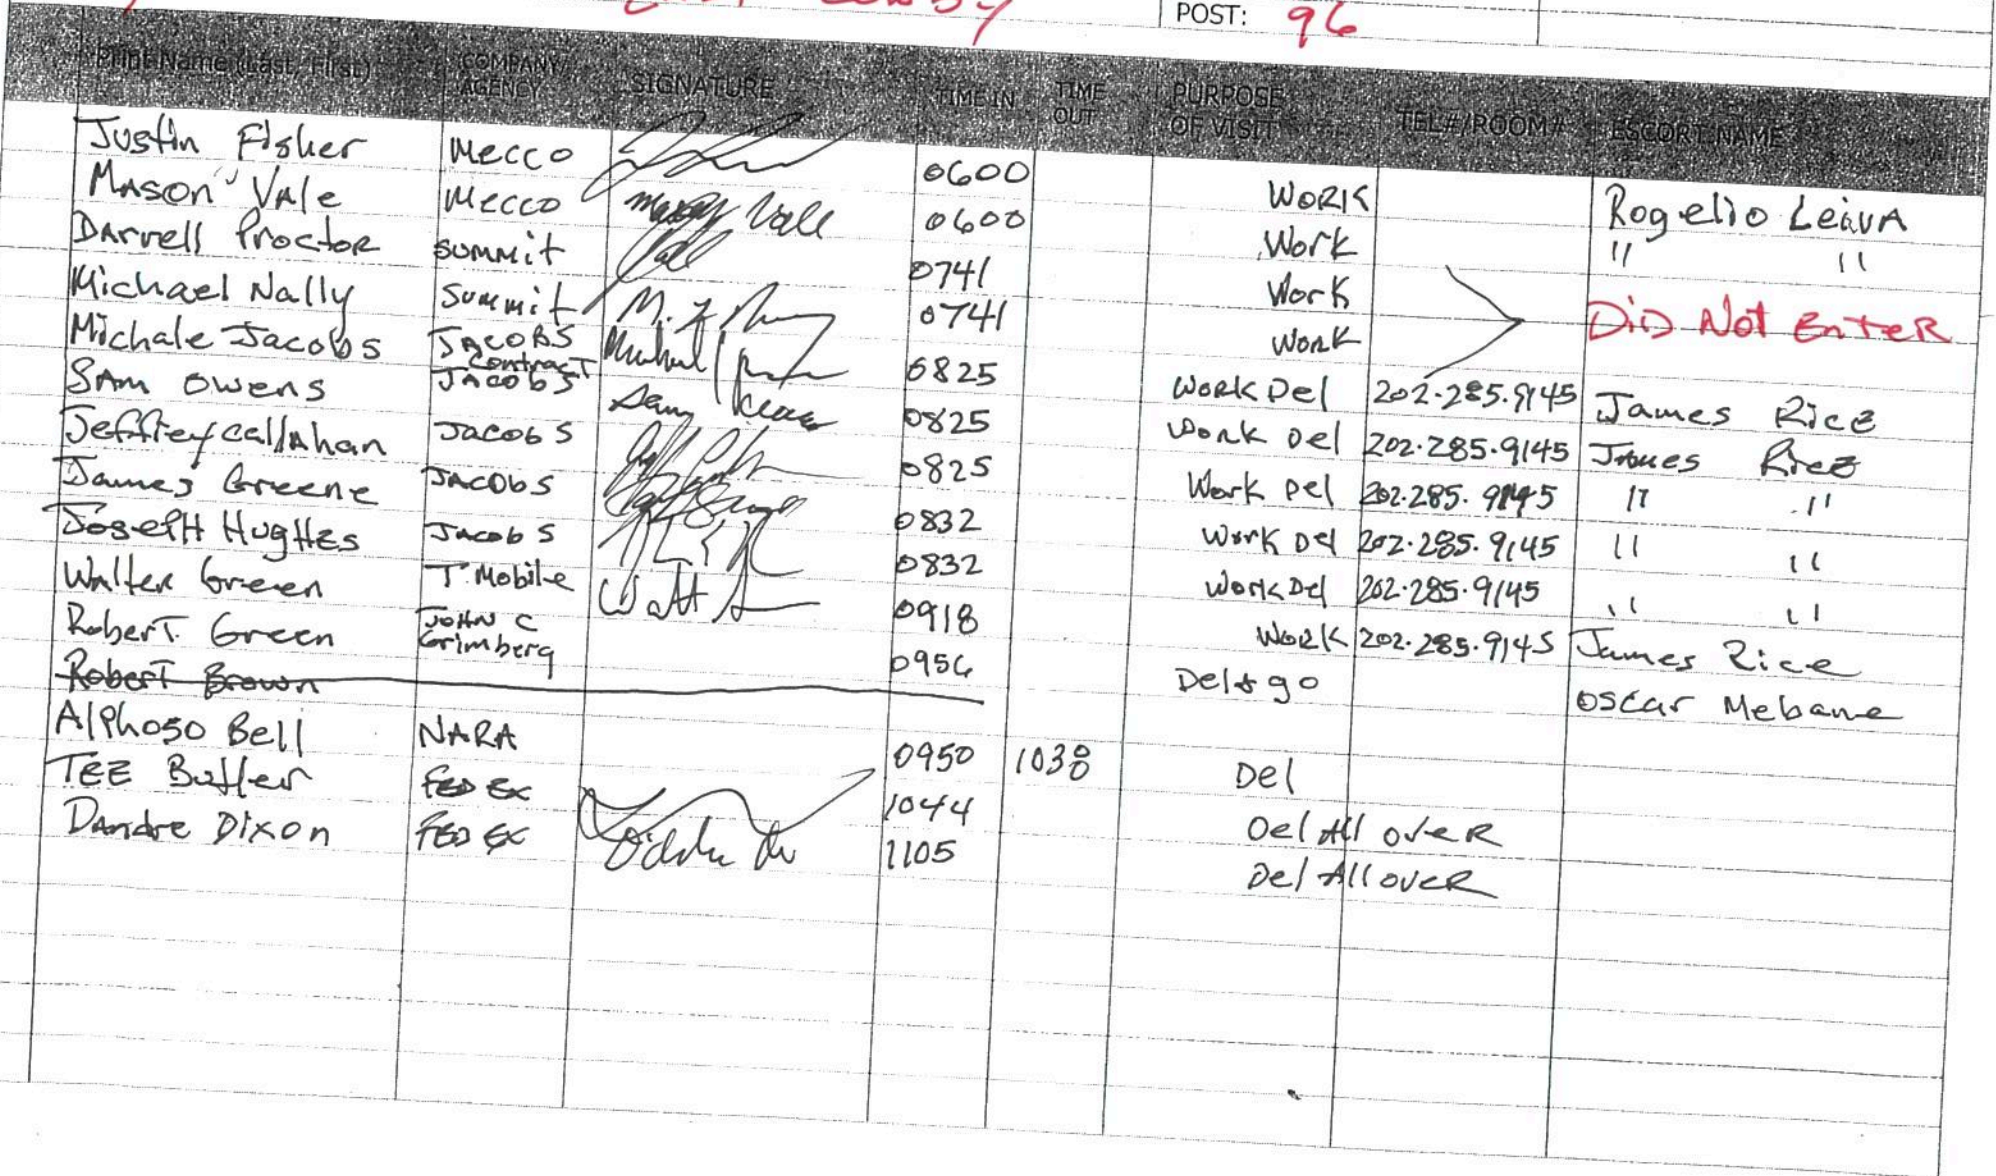 POST: 96
Print Name (Last, First) COMPANY/ AGENCY SIGNATURE TIME IN TIME OUT PURPOSE OF VISIT TEL#/ROOM# ESCORT NAME
Justin Fisher Mecco 0600 WORK Rogelio LeivA
MASON VAle Mecco 0600 Work " "
DArrell Proctor summit 0741 Work
Michael Nally Summit 0741 work DiD Not EnteR
Michale Jacobs JACOBS Contract 0825 Work Del 202.285.9145 James Rice
SAm Owens JACObS 0825 Work Del 202.285.9145 James Rice
Jeffrey CallAhan JacobS 0825 Work Del 202.285.9145 " "
James Greene JACObS 0832 Work Del 202.285.9145 " "
JosepH HugHes JacobS 0832 Work Del 202.285.9145 " "
Walter Green T. Mobile 0918 Work 202.285.9145 James Rice
RoberT. Green JoHN C Grimberg 0956 Del & go oscar Mebane
RoberT Brown
AlPhoso Bell NARA 0950 1030 Del
TEE Butler FED Ex 1044 Del All oveR
DAndre Dixon FED Ex 1105 Del All oveR